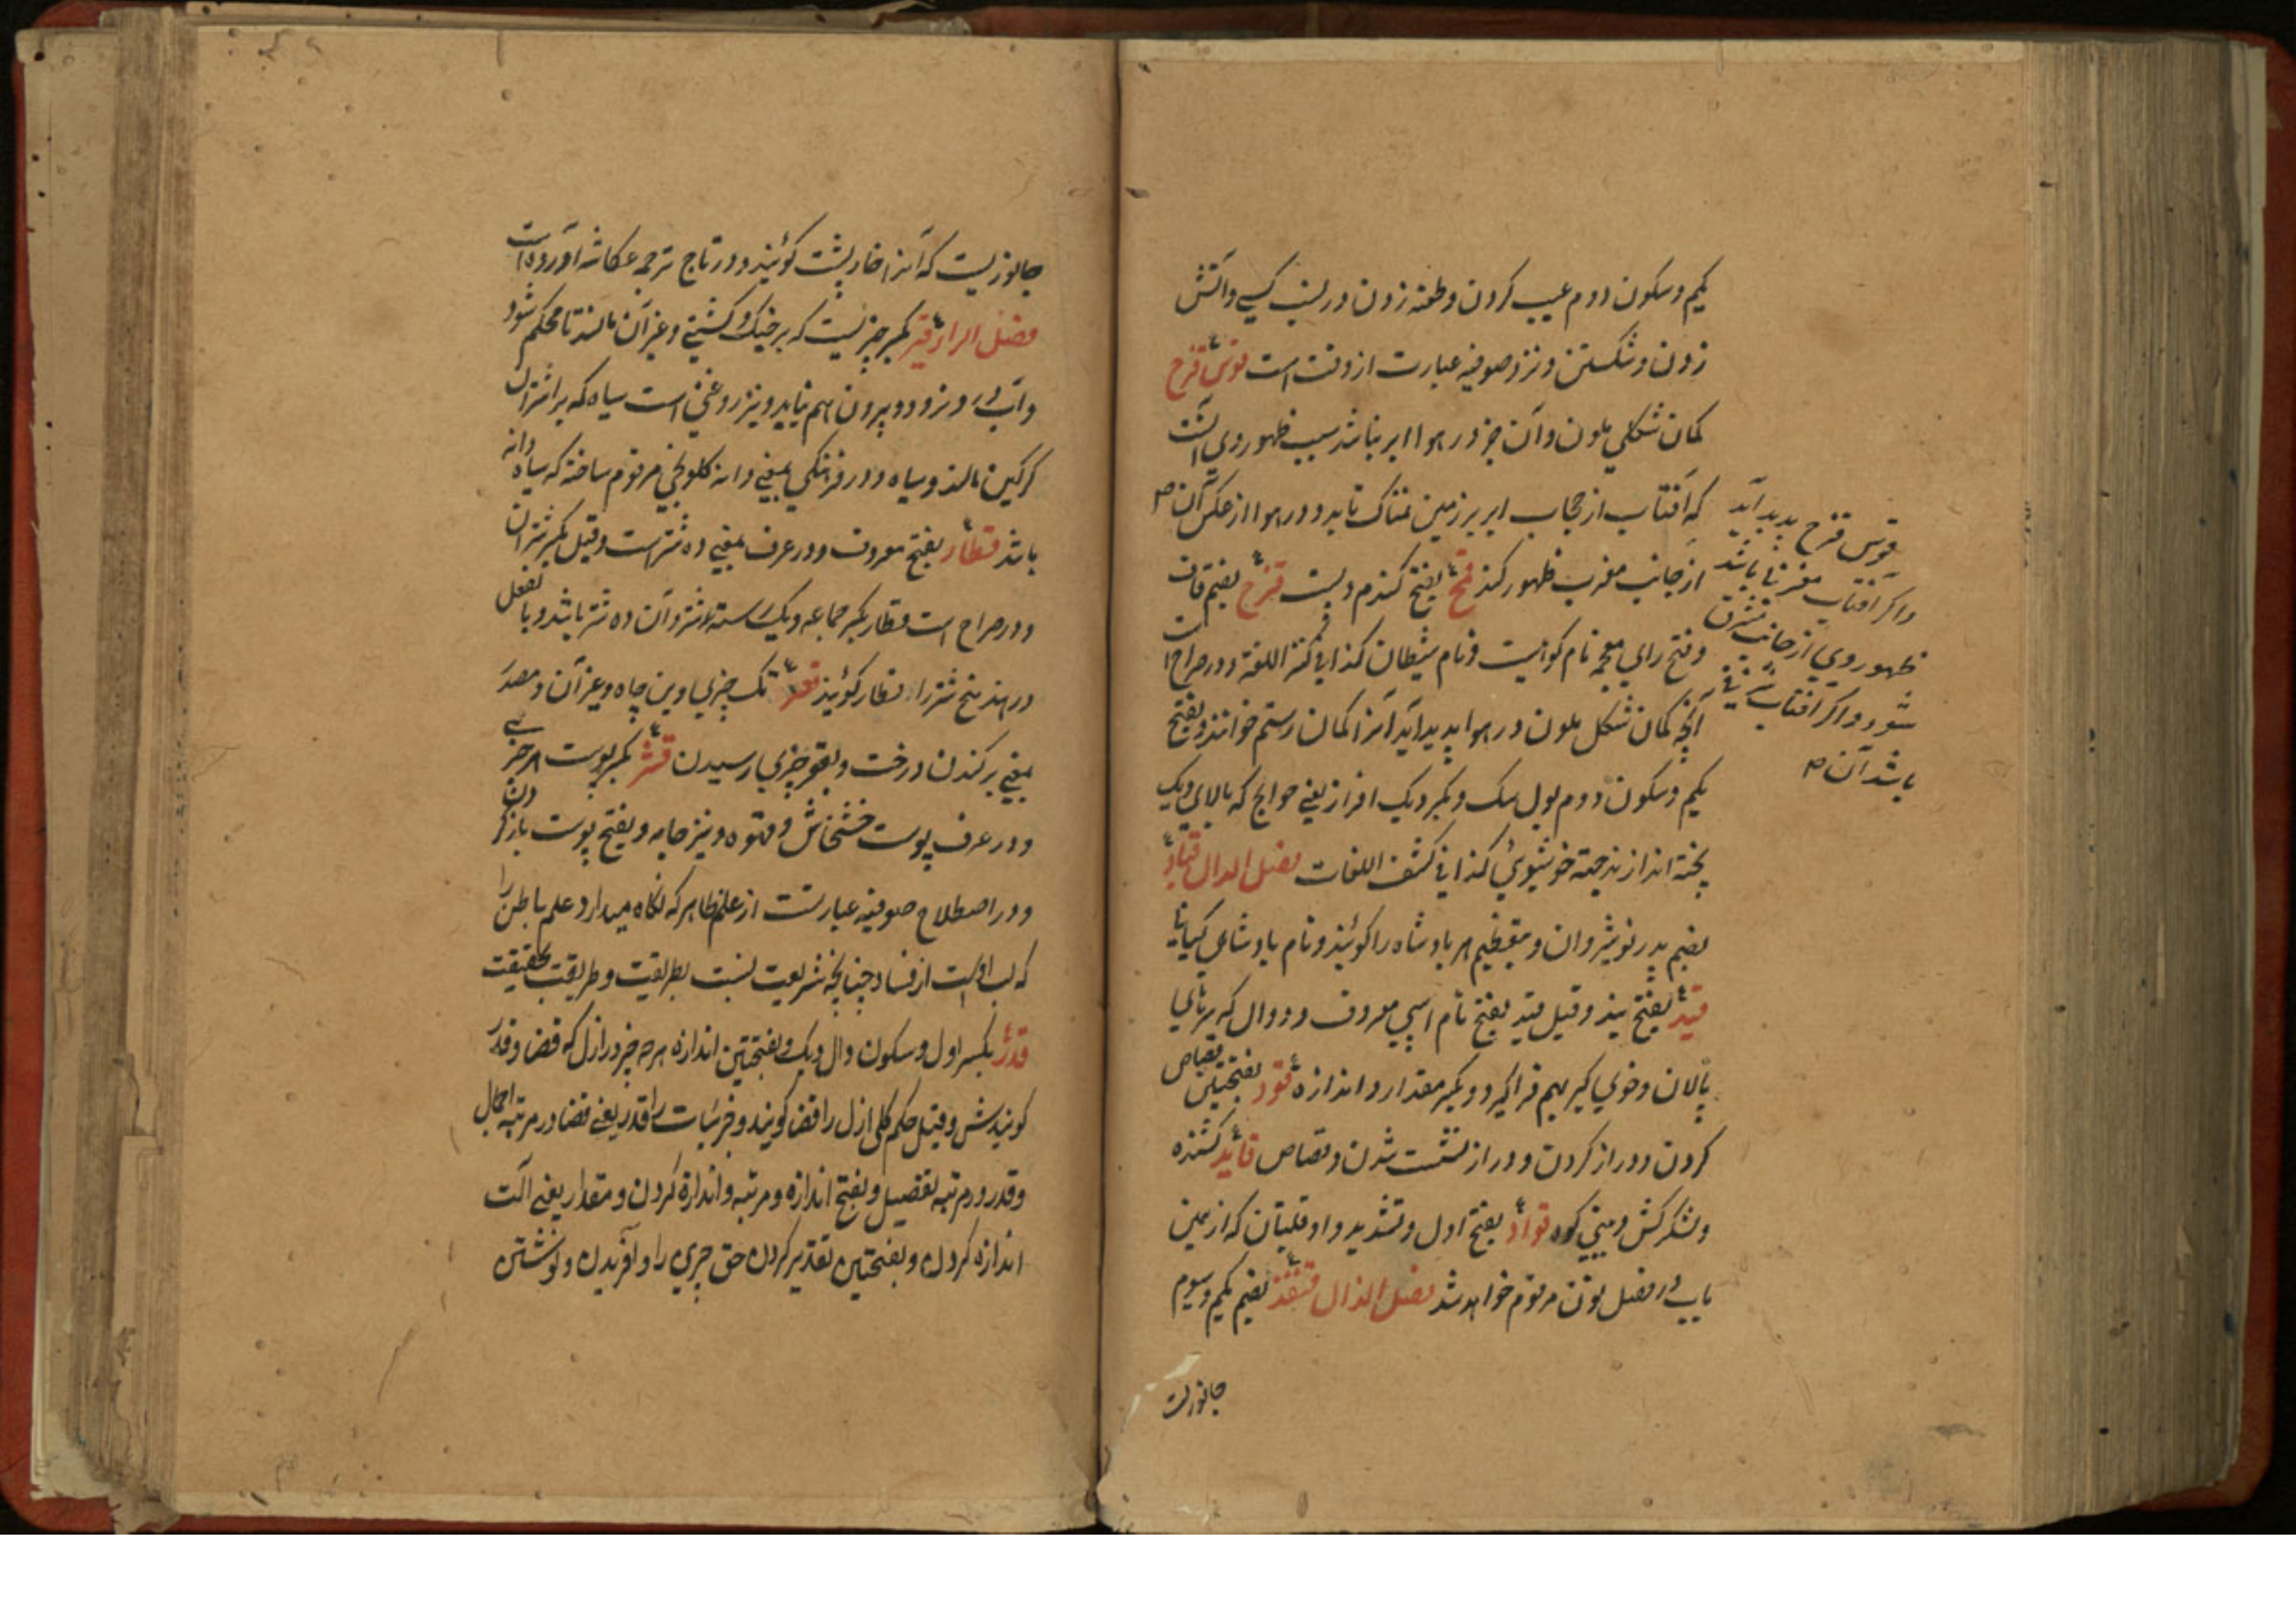 یکم وسکون دوم عیب کردن وطعنه زدن در نسب کسی وآتش
زدن وشکستن ونزد صوفیه عبارت از وقت است قوس قزح
کمان شکلی ملون وآن جز در هوا ابر نباشد سبب ظهور وی آنست
که آفتاب از حجاب ابر بر زمین نمناک تابد ودر هوا از عکس آن
از جانب مغرب ظهور کند قمح بفتح گندم وبست قزح بضم قاف
وفتح رای معجمه نام کوهیست ونام شیطان کذا فی کنز اللغة ودر صراح است
آنچه کمان شکل ملون در هوا پدید آید آنرا کمان رستم خوانند وبفتح
یکم وسکون دوم بول سگ وبکسر دیگ افزار یعنی حوایج که بالای دیگ
پخته اندازند جهة خوشبوئی کذا فی کشف اللغات فصل الدال قباد
بضم پدر نوشیروان وبتعظیم هر بادشاه را گویند ونام بادشاهی کیانی
قید بفتح بند وقیل قید بفتح نام اسپی معروف ودوال که برنای
پالان وخوی گیر بهم فراگیرد وبکسر مقدار واندازه قود بفتحتین قصاص
کردن ودراز کردن ودراز پشت شدن وقصاص قائد کشنده
ولشکرکش وبینی کوه قواد بفتح اول وتشدید واو قلتبان که از همین
باب در فصل نون مرقوم خواهد شد فصل الذال قنفذ بضم یکم وسیوم
جانوریست
قوس قزح پدید آید
واگر آفتاب مغربی باشد
ظهور وی از جانب مشرق
شود واگر آفتاب شرقی
باشد آن
جانوریست که آنرا خارپشت گویند ودر تاج ترجمه عکاشه آورده است
فصل الراء قیر بکسر چیزیست که بر خنک وکشتی وغیر آن مالند تا محکم شود
وآب در ونرود وبیرون هم نیاید ونیز روغنی است سیاه که بر اشتران
گرگین مالند وسیاه ودر فرهنگی بمعنی دانه کلونجی مرقوم ساخته که سیاه دانه
باشد قطار بفتح معروف ودر عرف بمعنی ده شتر است وقیل بکسر شتران
ودر صراح است قطار بکسر جماعه ویک رسته شتر وآن ده شتر باشد وبالفعل
در هند پنج شتر را قطار گویند قعر تک چیزی وبن چاه وغیر آن ومصدر
بمعنی برکندن درخت وبقعر چیزی رسیدن قشر بکسر پوست هر چیزی
ودر عرف پوست خشخاش وقهوه ونیز جامه وبفتح پوست باز کردن
ودر اصطلاح صوفیه عبارتست از علم ظاهر که نگاه میدارد علم باطن را
که لب اوست از فساد چنانچه شریعت نسبت بطریقت وطریقت بحقیقت
قدر بکسر اول وسکون دال دیگ وبفتحتین اندازه هر چیز در ازل که قضا وقدر
گویندش وقیل حکم کلی ازل را قضا گویند وجزئیات را قدر یعنی قضا در مرتبه اجمال
وقدر در مرتبه تفصیل وبفتح اندازه ومرتبه واندازه کردن ومقدار یعنی آلت
اندازه کردن وبفتحتین تقدیر کردن حق چیزی را وآفریدن ونوشتن